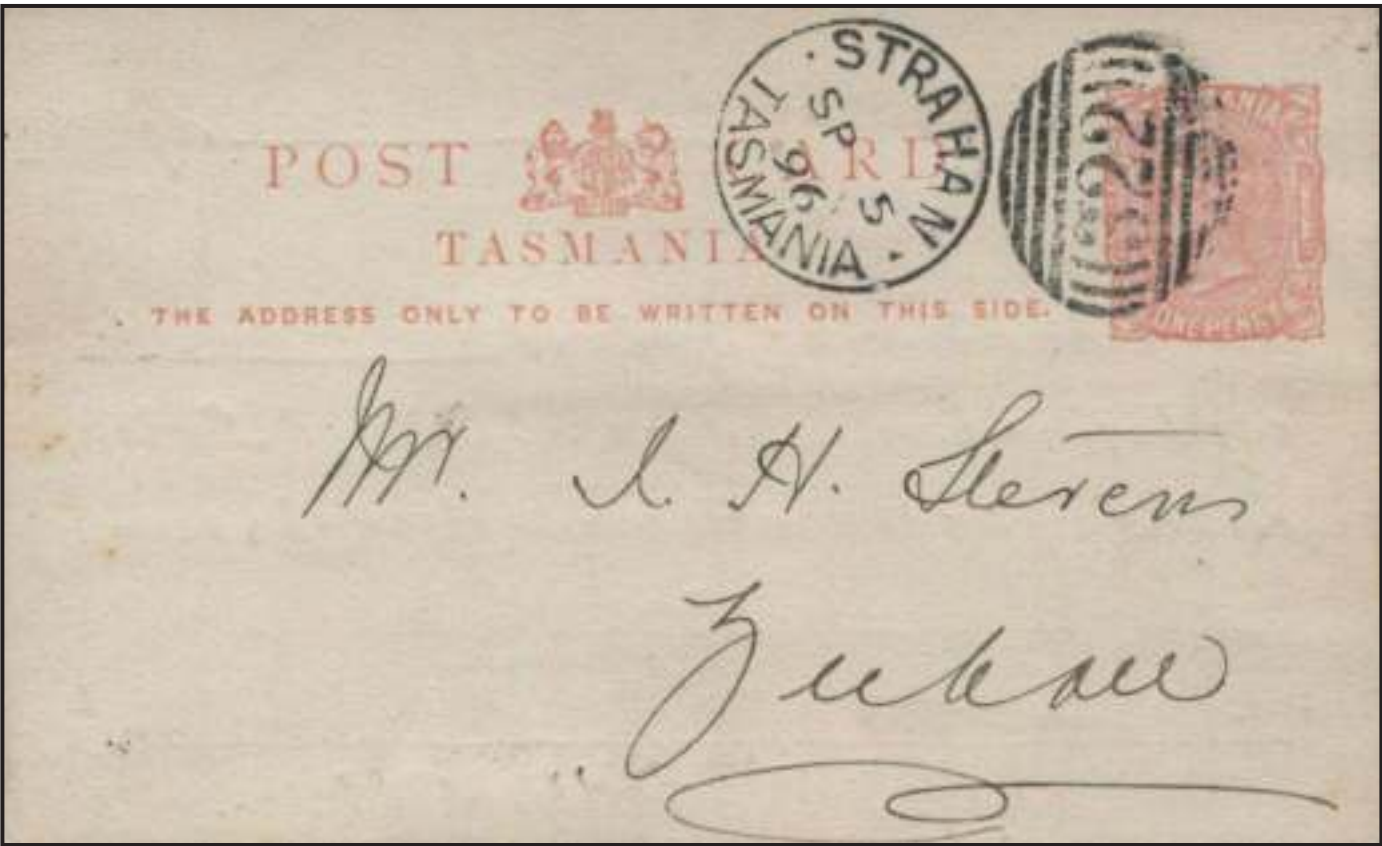 POST CARD
TASMANIA
THE ADDRESS ONLY TO BE WRITTEN ON THIS SIDE.
STRAHAN
SP 5
96
TASMANIA
ONE PENNY
Mr. I. H. Stevens
Zeehan